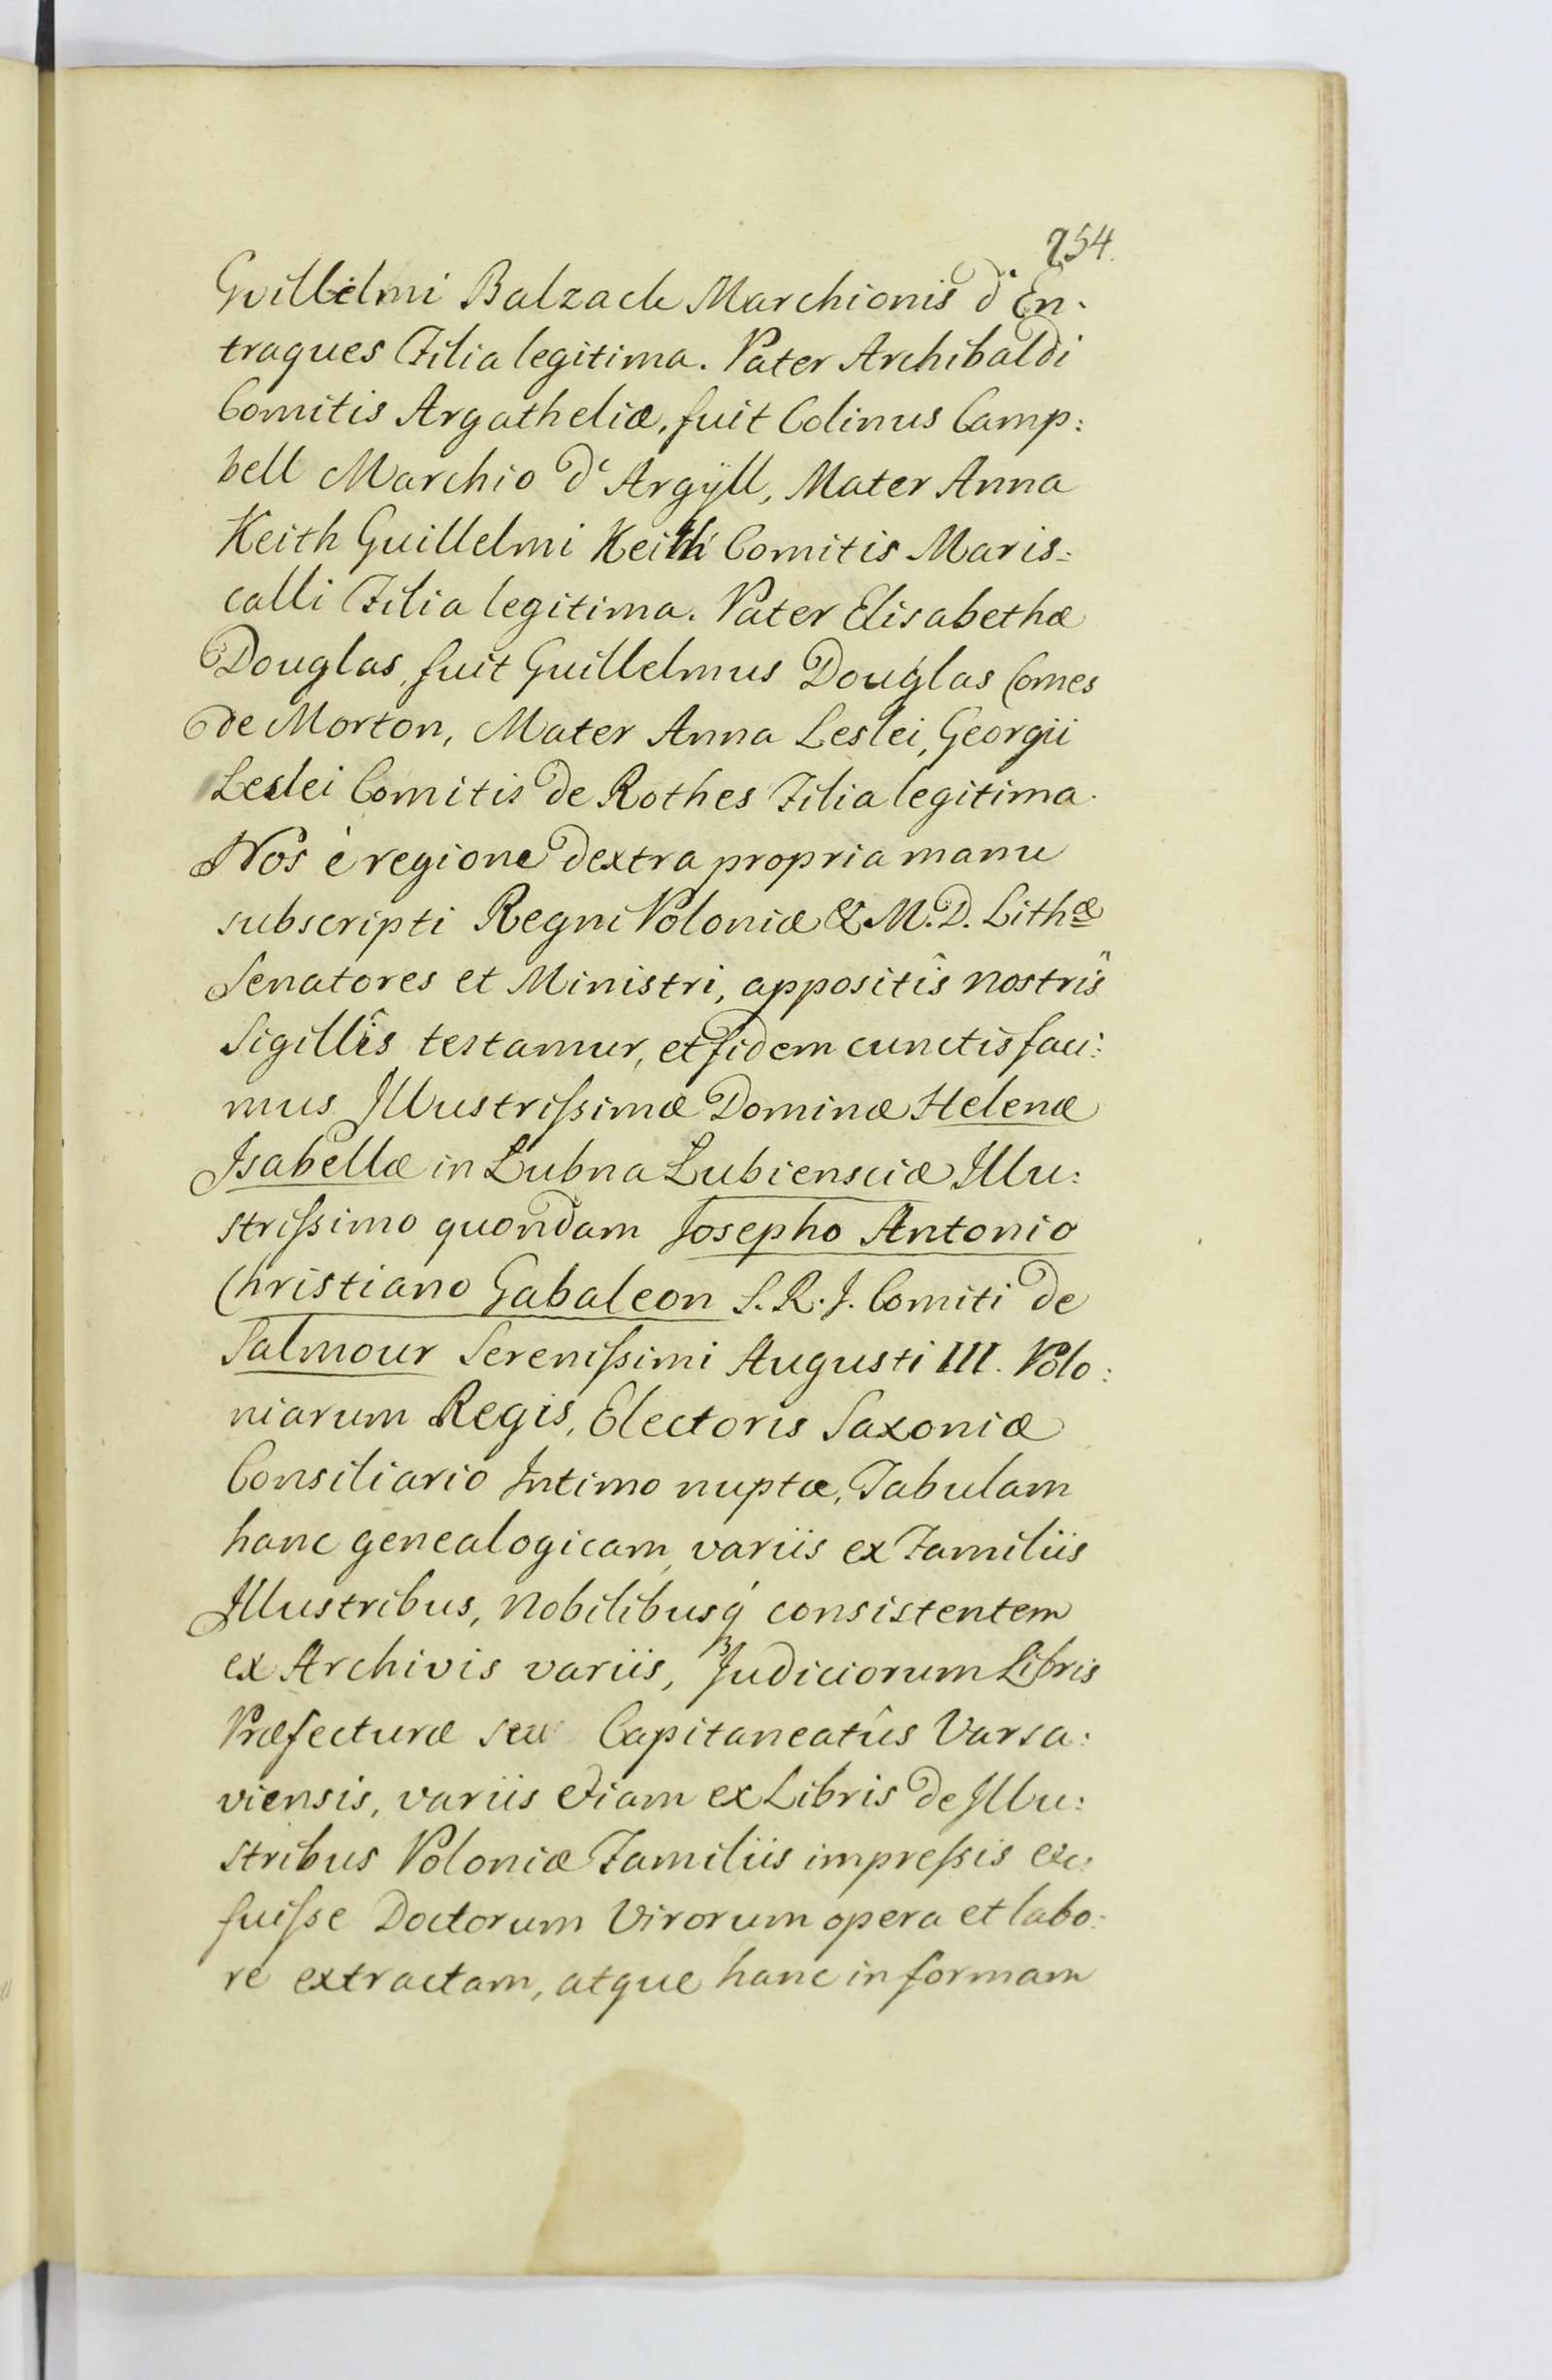 254.
Guillelmi Balzack Marchionis d'En-
traques Filia legitima. Pater Archibaldi
Comitis Argatheliæ, fuit Colinus Camp:
bell Marchio d'Argÿll, Mater Anna
Keith Guillelmi Keith Comitis Maris:
calli Filia legitima. Pater Elisabethæ
Douglas, fuit Guillelmus Douglas Comes
de Morton, Mater Anna Leslei, Georgii
Leslei Comitis de Rothes Filia legitima.
Nos è regione dextra propria manu
subscripti Regni Poloniæ & M. D. Lithæ
Senatores et Ministri, appositîs nostrîs
Sigillîs testamur, et fidem cunctis faci:
mus Illustrissimæ Dominæ Helenæ
Isabellæ in Lubna Lubiensciæ Illu:
strissimo quondam Josepho Antonio
Christiano Gabaleon S. R. J. Comiti de
Salmour Serenissimi Augusti III. Polo:
niarum Regis, Electoris Saxoniæ
Consiliario Intimo nuptæ, Tabulam
hanc genealogicam, variis ex Familiis
Illustribus, Nobilibusq́ consistentem
ex Archivis variis, Judiciorum Libris
Præfecturæ seu Capitaneatûs Varsa:
viensis, variis etiam ex Libris de Illu:
stribus Poloniæ Familiis impressis
fuisse Doctorum Virorum opera et labo:
re extractam, atque hanc in formam